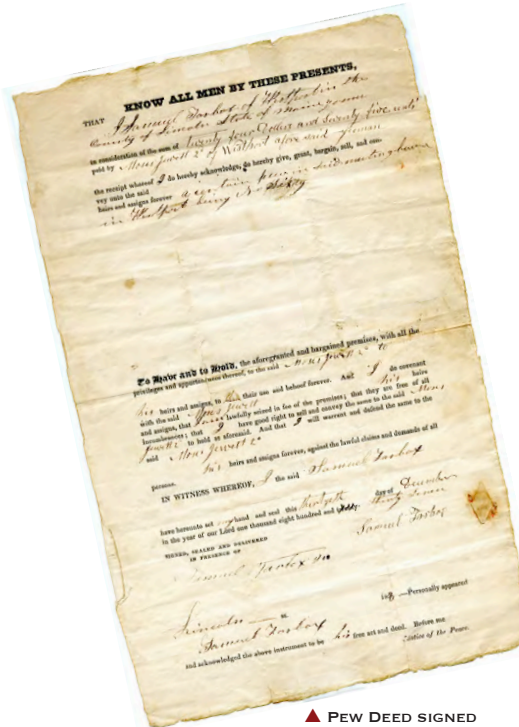 KNOW ALL MEN BY THESE PRESENTS,
THAT I Samuel Tarbox of Westport in the
County of Lincoln State of Maine
in consideration of the sum of Twenty four Dollars and Seventy five cents
paid by Moses Jewett 2d of Westport afore said
the receipt whereof I do hereby acknowledge, do hereby give, grant, bargain, sell, and con-
vey unto the said
heirs and assigns forever a certain pew in said meeting house
in Westport being No
To Have and to Hold, the aforegranted and bargained premises, with all the
privileges and appurtenances thereof, to the said Moses Jewett 2d
his heirs and assigns, to their use and behoof forever. And I do covenant
with the said Moses Jewett his heirs
and assigns, that lawfully seized in fee of the premises; that they are free of all
incumbrances; that I have good right to sell and convey the same to the said Moses
Jewett 2d to hold as aforesaid. And that I will warrant and defend the same to the
said Moses Jewett 2d
his heirs and assigns forever, against the lawful claims and demands of all
persons.
IN WITNESS WHEREOF, I the said Samuel Tarbox
have hereunto set my hand and seal this day of December
in the year of our Lord one thousand eight hundred and thirty seven
SIGNED, SEALED AND DELIVERED
IN PRESENCE OF
Samuel Tarbox
Samuel Tarbox
Lincoln ss. 18 .—Personally appeared
Samuel Tarbox
and acknowledged the above instrument to be his free act and deed. Before me
Justice of the Peace.
▲ PEW DEED SIGNED